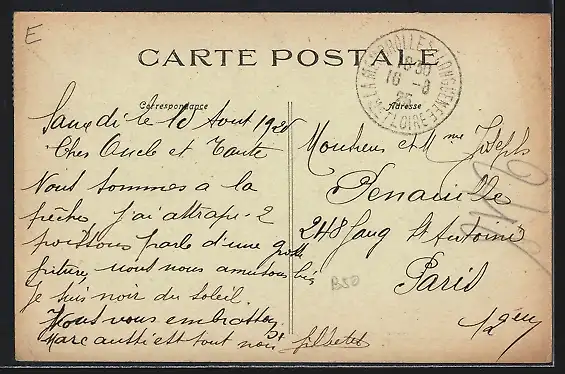 E
CARTE POSTALE
Correspondance
Adresse
LA MEMBROLLE S/ LONGUENÉE
MAINE ET LOIRE
18 30
16 - 8
25
Samedi le 15 Aout 1925
Cher Oncle et Tante
Nous sommes a la
pêche, j'ai attrapé 2
poissons parle d'une grosse
friture, nous nous amusons bien
Je suis noir du soleil.
Nous vous embrassons
Marc aussi est tout noir
Monsieur et Mme Joseph
Penauille
248 Faug St Antoine
Paris
12 ème
B50